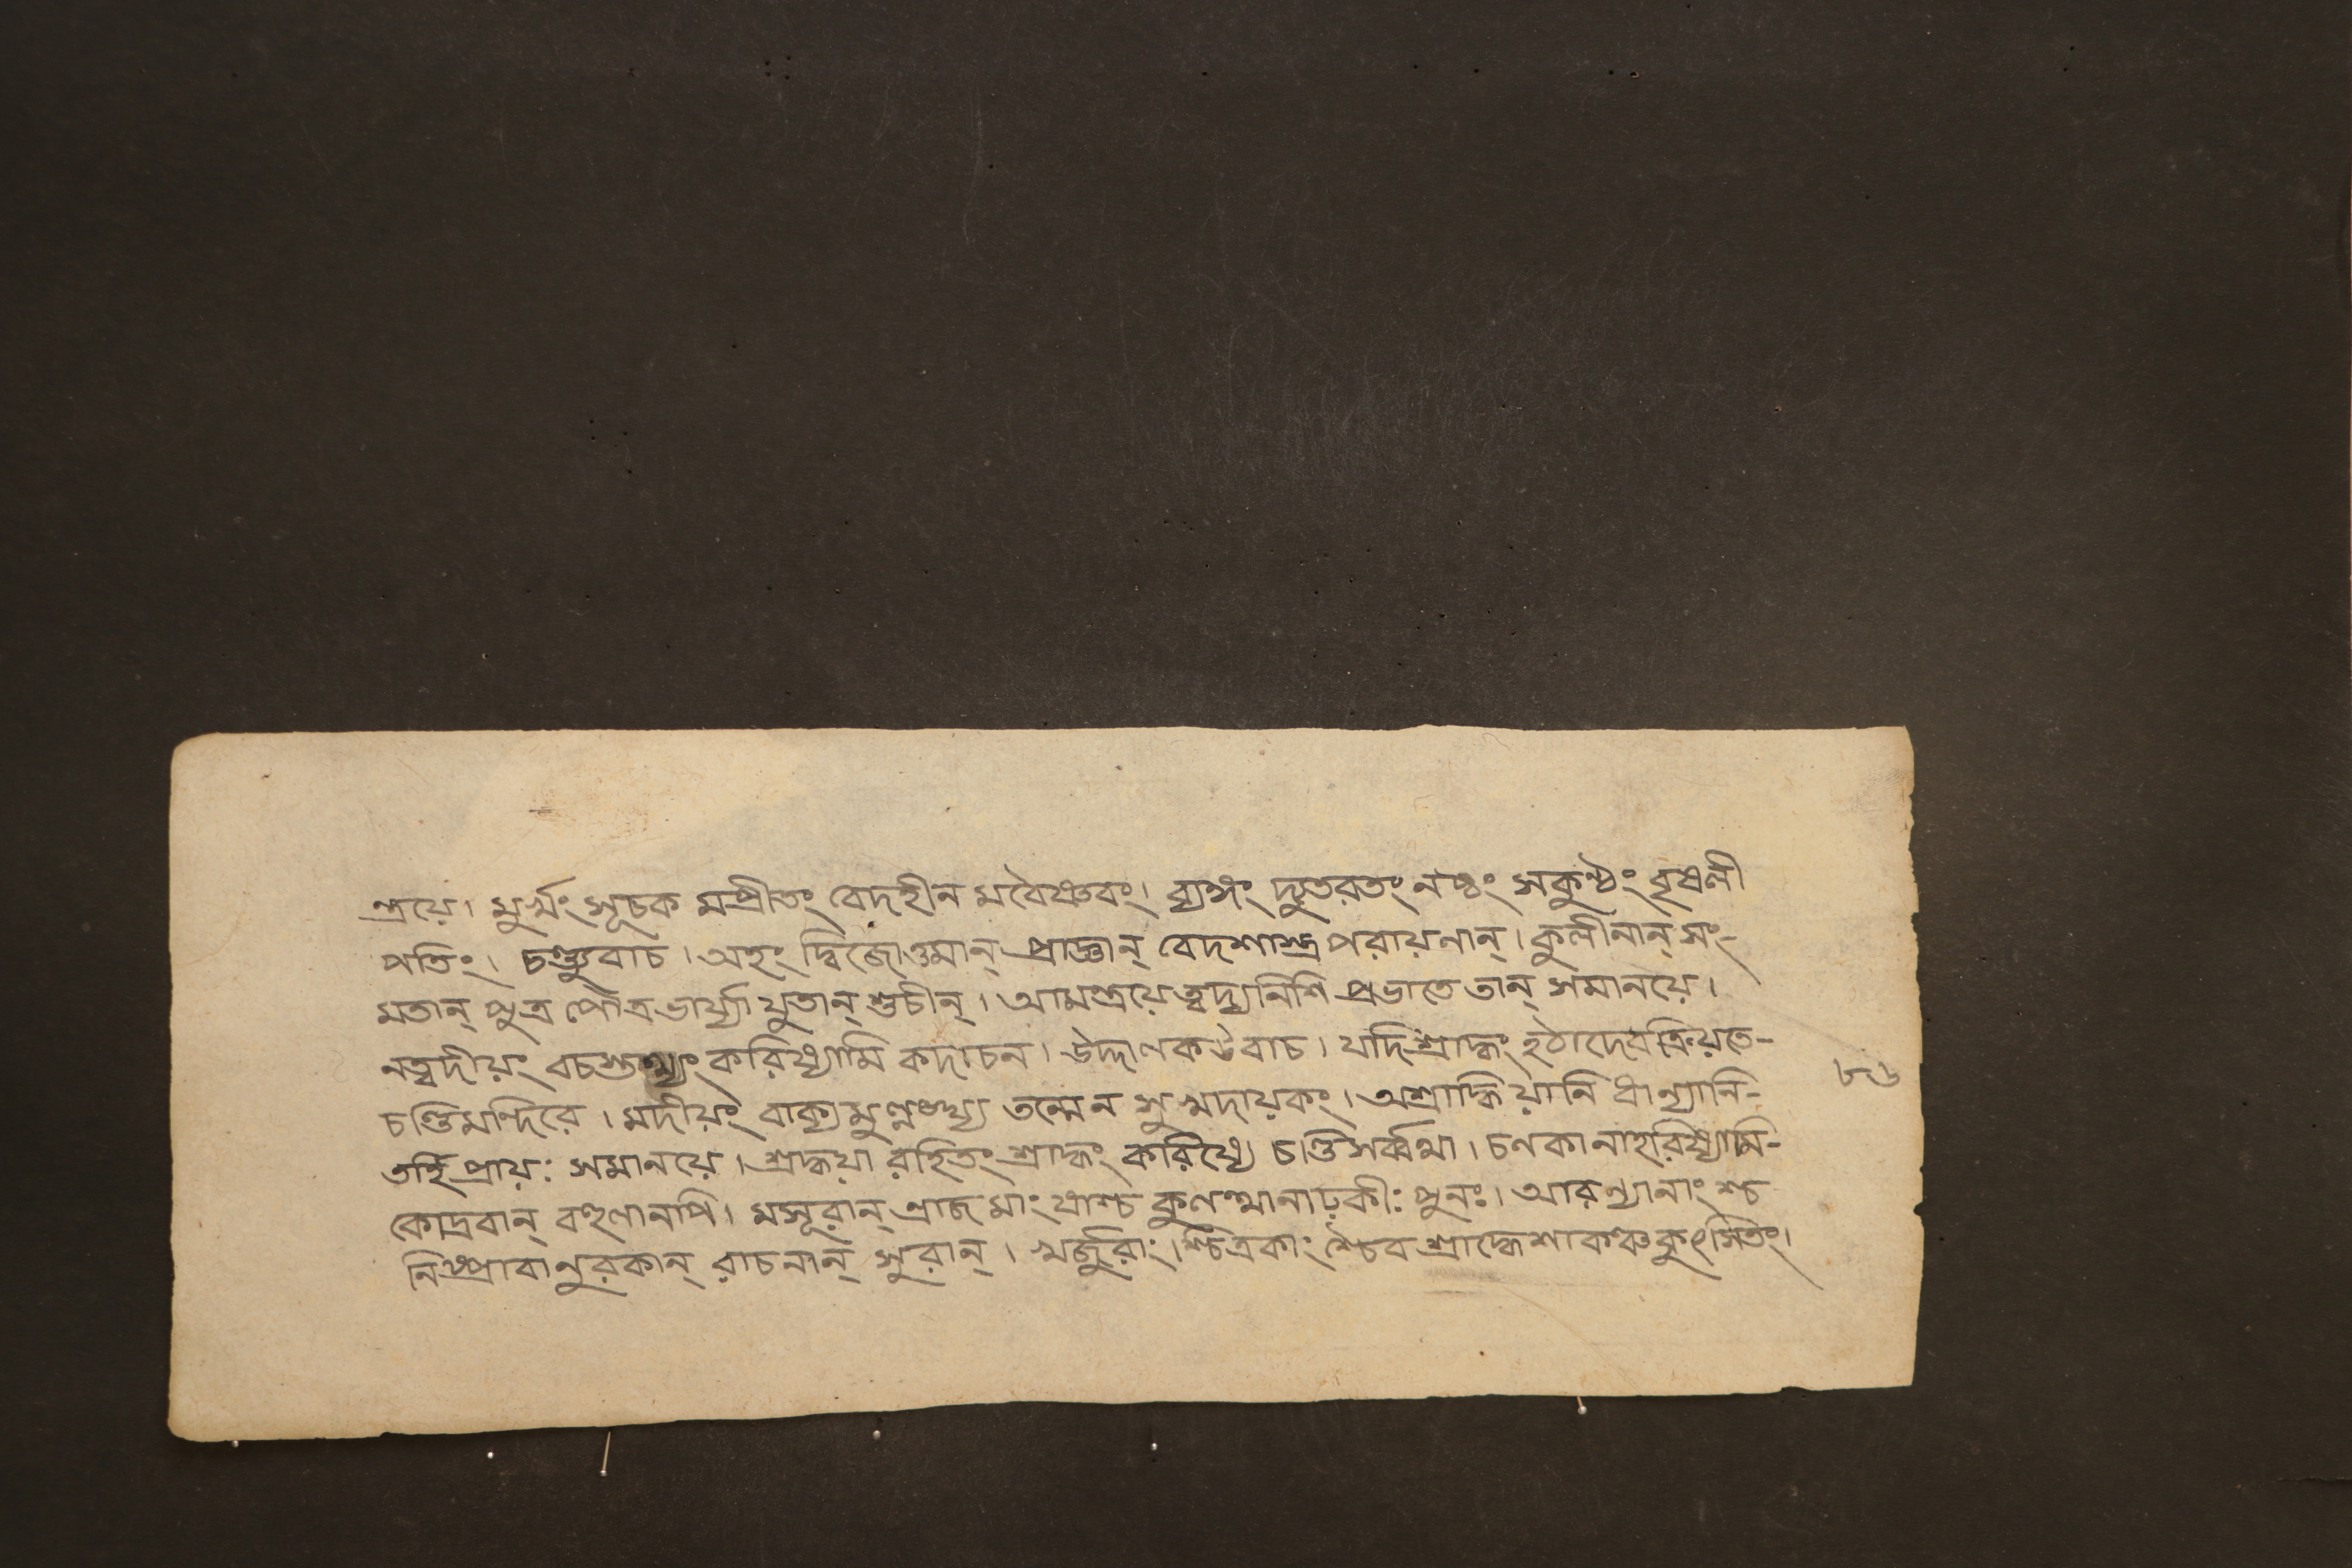 ন্ত্রয়ে। মুর্খং সূচক মপ্রীতং বেদহীন মবৈষ্ণবং। ব্যঙ্গং দ্যুতরতং নষ্টং সকুষ্ঠং বৃষলী
পতিং। চণ্ড্যুবাচ। অহং দ্বিজোত্তমান্ প্রাজ্ঞান্ বেদশাস্ত্র পরায়নান্। কুলীনান্ সং-
মতান্ পুত্র পৌত্র ভার্য্যা যুতান্ শুচীন্। আমন্ত্রয়ে ত্বদ্য নিশি প্রভাতে তান্ সমানয়ে।
নত্বদীয়ং বচস্তথ্যং করিষ্যামি কদাচন। উদ্দালক উবাচ। যদি শ্রাদ্ধং হঠাদেব ক্রিয়তে-
চণ্ডি মন্দিরে। মদীয়ং বাক্য মুল্লঙ্ঘ্য তন্মেন সুখদায়কং। অশ্রাদ্ধিয়ানি ধান্যানি-
তর্হি প্রায়ঃ সমানয়ে। শ্রদ্ধয়া রহিতং শ্রাদ্ধং করিষ্যে চণ্ডি সর্ব্বথা। চণকা নাহরিষ্যামি-
কোদ্রবান্ বহুলানপি। মসূরান্ রাজ মাং ষাশ্চ কুলত্থানাঢ়কীঃ পুনঃ। আরন্যানাং শ্চ
নিষ্প্রাবা নুরকান্ রাচনান্ সুরান্। খর্জুরাং শ্চিত্রকাং শ্চৈব শ্রাদ্ধে শাকঞ্চ কুৎসিতং।
৮৬